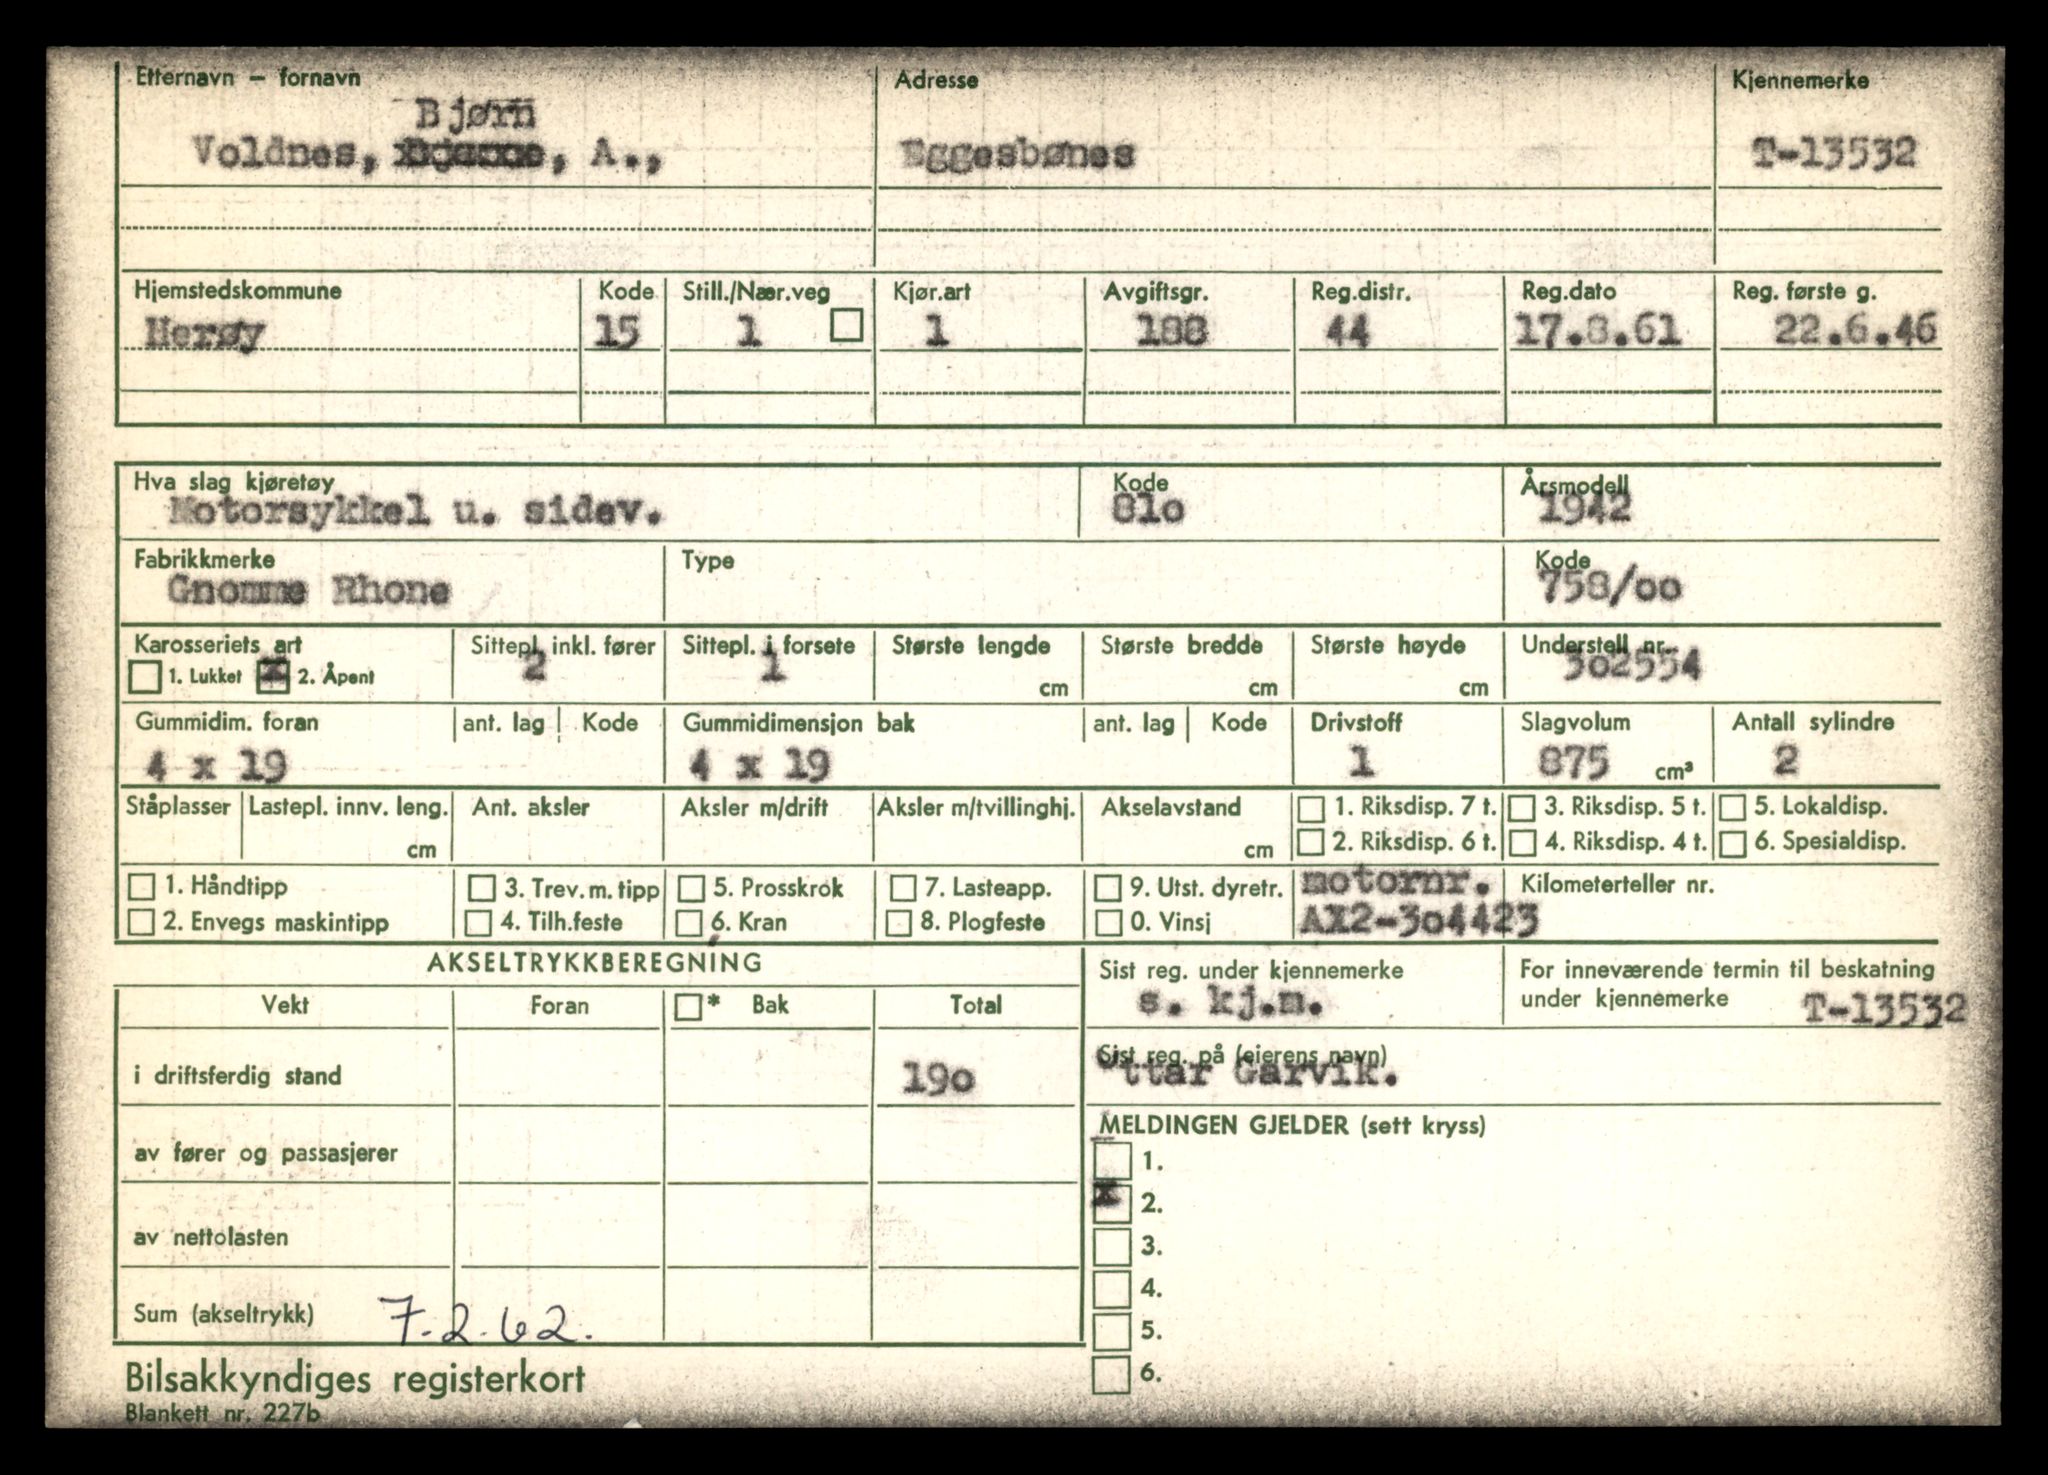 Etternavn – fornavn Adresse Kjennemerke
Bjørn
Voldnes, , A., Eggesbønes T-13532
Hjemstedskommune Kode Still./Nær.veg Kjør.art Avgiftsgr. Reg.distr. Reg.dato Reg. første g.
Herøy 15 1 1 188 44 17.8.61 22.6.46
Hva slag kjøretøy Kode Årsmodell
Motorsykkel u. sidev. 81o 1942
Fabrikkmerke Type Kode
Gnomme Rhone 758/oo
Karosseriets art Sittepl. inkl. fører Sittepl. i forsete Største lengde Største bredde Største høyde Understell nr.
1. Lukket x 2. Åpent 2 1 cm cm cm 3o2554
Gummidim. foran ant. lag Kode Gummidimensjon bak ant. lag Kode Drivstoff Slagvolum Antall sylindre
4 x 19 4 x 19 1 875 cm³ 2
Ståplasser Lastepl. innv. leng. Ant. aksler Aksler m/drift Aksler m/tvillinghj. Akselavstand 1. Riksdisp. 7 t. 3. Riksdisp. 5 t. 5. Lokaldisp.
cm cm 2. Riksdisp. 6 t. 4. Riksdisp. 4 t. 6. Spesialdisp.
1. Håndtipp 3. Trev. m. tipp 5. Prosskrok 7. Lasteapp. 9. Utst. dyretr. motornr. Kilometerteller nr.
2. Envegs maskintipp 4. Tilh.feste 6. Kran 8. Plogfeste 0. Vinsj AX2-3o4423
AKSELTRYKKBEREGNING Sist reg. under kjennemerke For inneværende termin til beskatning
Vekt Foran * Bak Total s. kj.m. under kjennemerke T-13532
Sist reg. på (eierens navn)
i driftsferdig stand 19o Ottar Garvik.
MELDINGEN GJELDER (sett kryss)
av fører og passasjerer 1.
x 2.
av nettolasten 3.
4.
Sum (akseltrykk) 7.2.62. 5.
Bilsakkyndiges registerkort 6.
Blankett nr. 227b